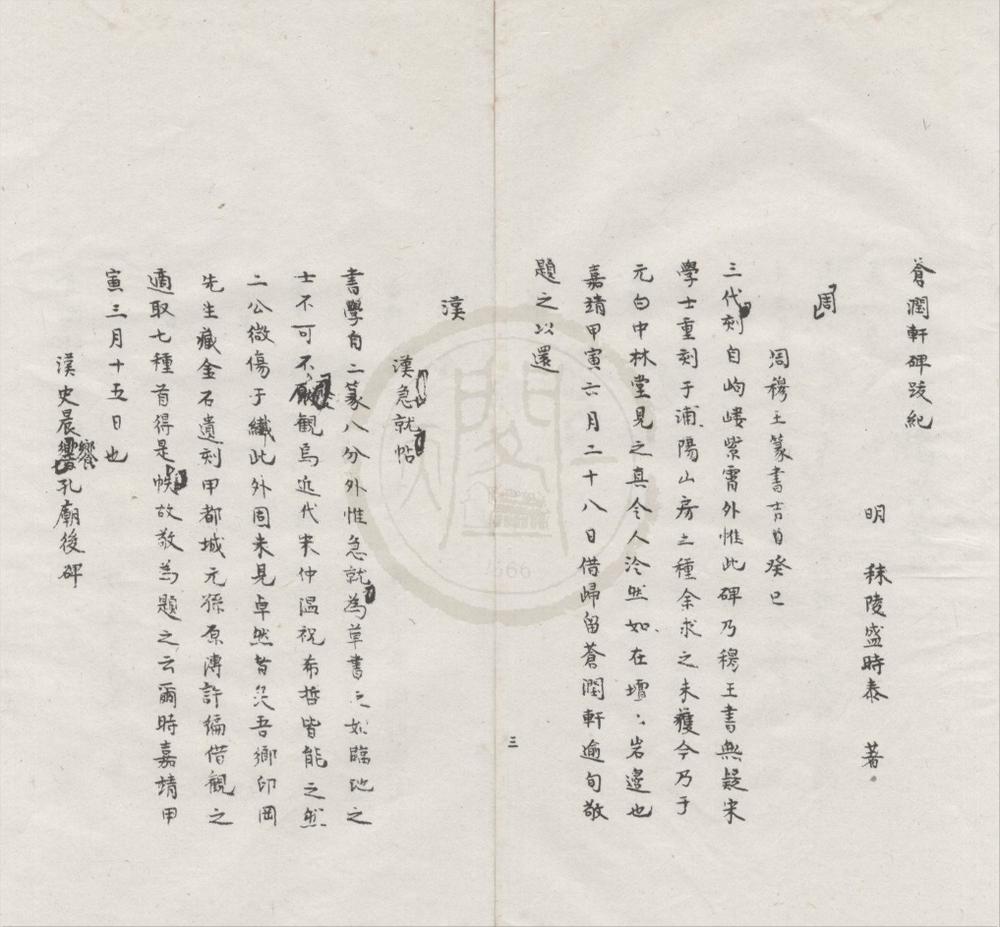 蒼潤軒碑跋紀
明 秣陵盛時泰 著
周
周穆王篆書吉日癸巳
三代刻自岣嶁紫霄外惟此碑乃穆王書無疑宋
學士重刻于浦陽山房二種余求之未獲今乃于
元白中林堂見之真令人泠然如在壇山岩邊也
嘉靖甲寅六月二十八日借歸留蒼潤軒逾旬敬
題之以還
三
漢
漢急就帖
書學自二篆八分外惟急就為草書之始臨池之
士不可不觀焉近代宋仲溫祝希哲皆能之然
二公微傷于纖此外周未見卓然者吾鄉印岡
先生藏金石遺刻甲都城元孫原溥許編借觀之
適取七種首得是帙故敬為題之云爾時嘉靖甲
寅三月十五日也
漢史晨饗孔廟後碑